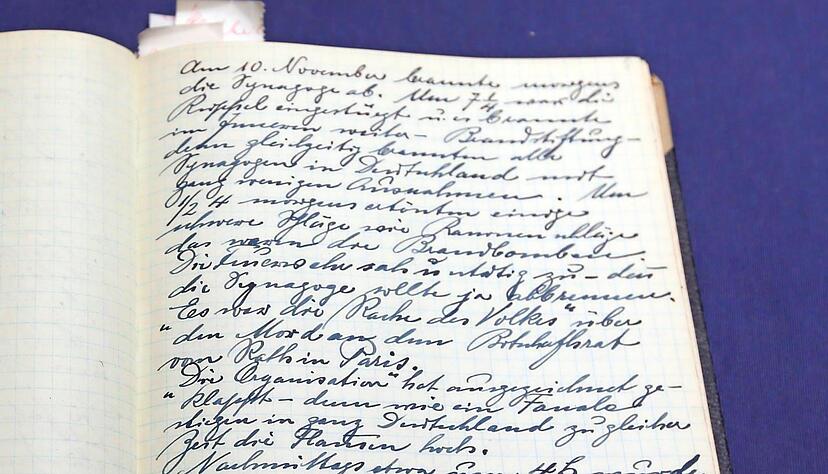 Am 10. November brannte morgens
die Synagoge ab. Um 7¼ war die
Kuppel eingestürzt u. es brannte
im Inneren weiter – Brandstiftung –
denn gleichzeitig brannten alle
Synagogen in Deutschland mit
ganz wenigen Ausnahmen. Um
1/2 4 morgens ertönten einige
schwere Schläge wie Kanonenschläge
das waren die Brandbomben.
Die Feuerwehr sah untätig zu – denn
die Synagoge sollte ja abbrennen.
Es war die "Rache des Volkes" über
den Mord an dem Botschaftsrat
vom Rath in Paris.
"Die Organisation" hat ausgezeichnet ge-
klappt – denn wie ein "Fanale"
stiegen in ganz Deutschland zu gleicher
Zeit die Flammen hoch.
Nachmittags etwa um 4h wurde